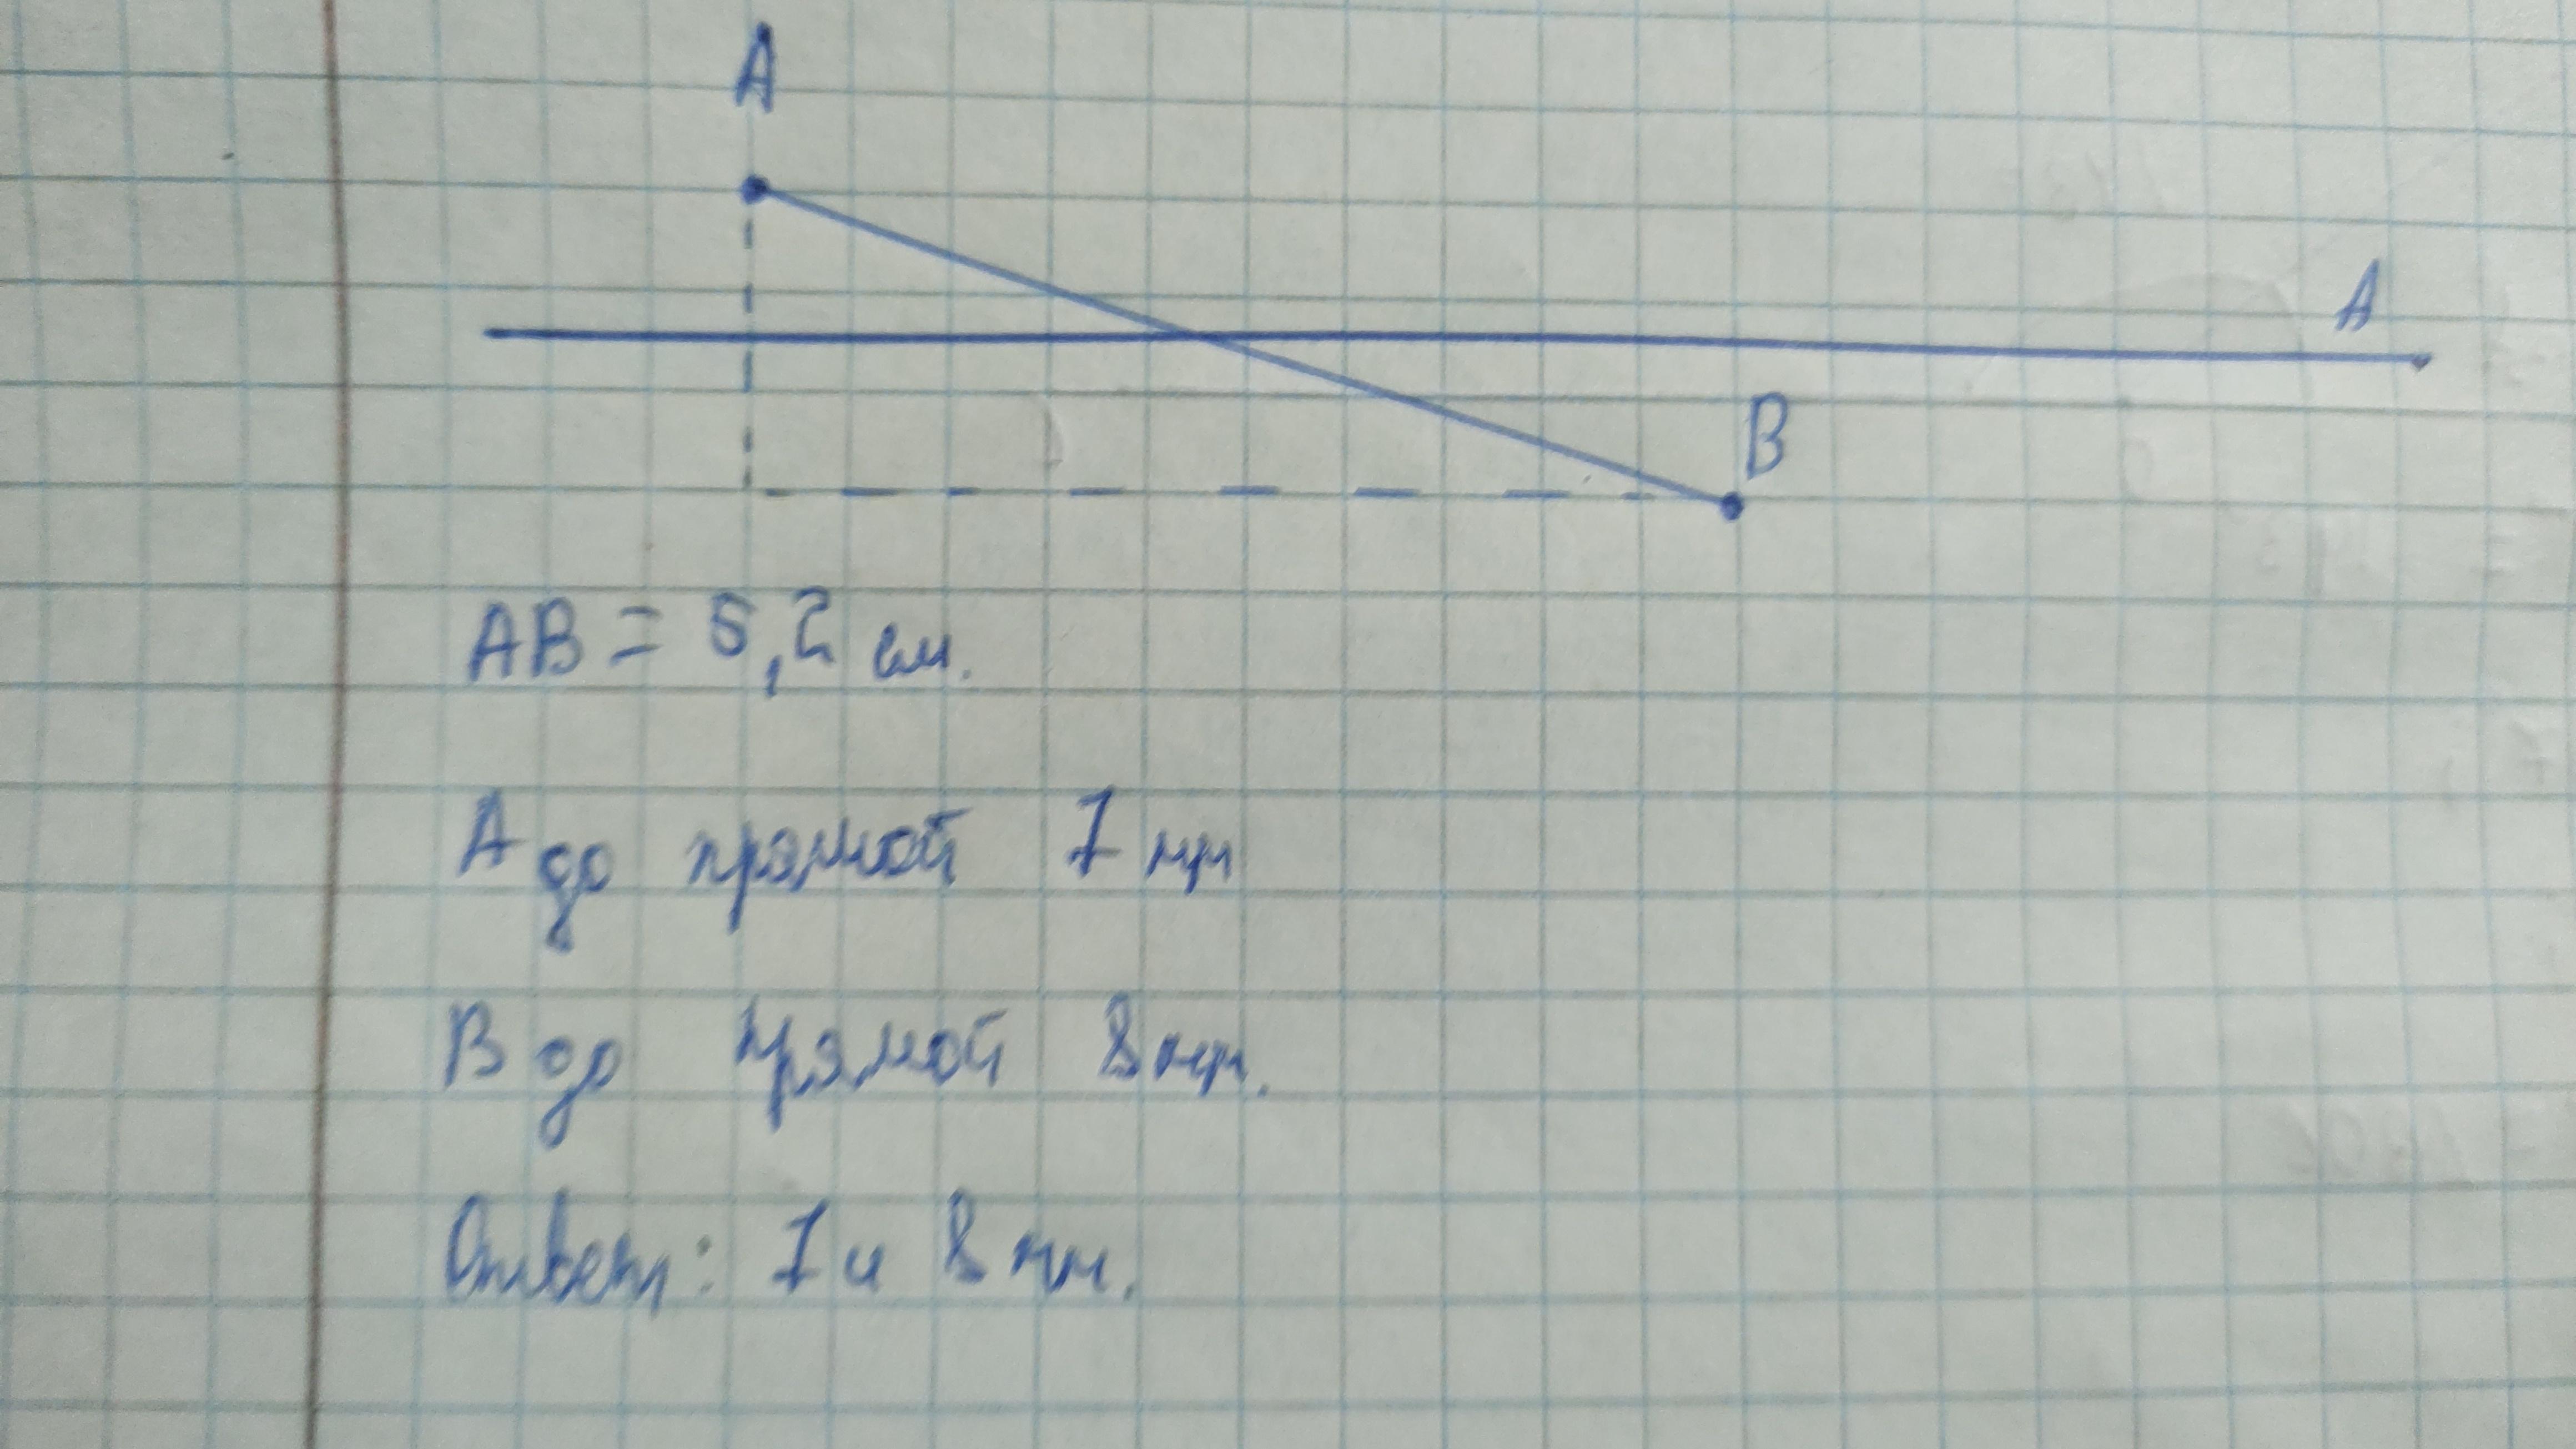 A
A
B
AB = 5,2 см.
A до прямой 7 мм
B до прямой 8 мм.
Ответ: 7 и 8 мм.